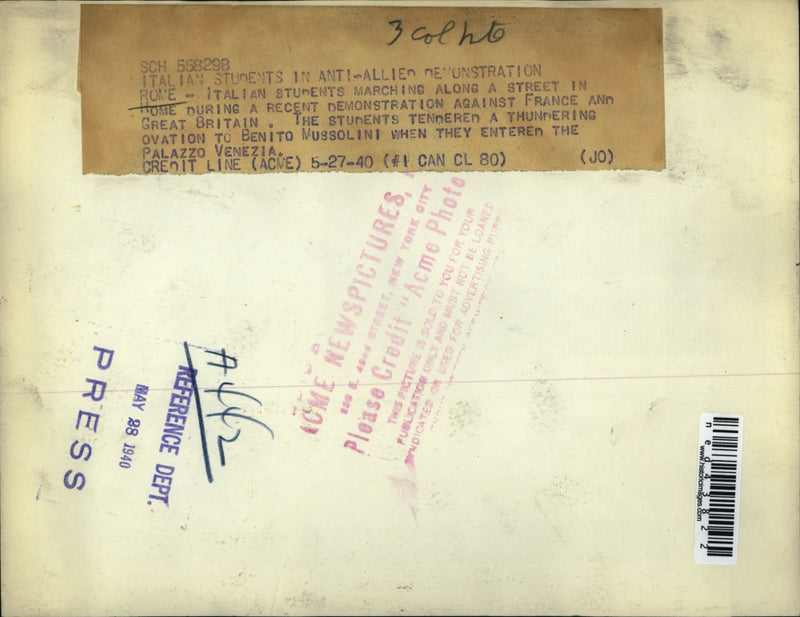 3 col
SCH 558298
ITALIAN STUDENTS IN ANTI-ALLIED DEMONSTRATION
ROME - ITALIAN STUDENTS MARCHING ALONG A STREET IN
ROME DURING A RECENT DEMONSTRATION AGAINST FRANCE AND
GREAT BRITAIN . THE STUDENTS TENDERED A THUNDERING
OVATION TO BENITO MUSSOLINI WHEN THEY ENTERED THE
PALAZZO VENEZIA.
CREDIT LINE (ACME) 5-27-40 (#1 CAN CL 80) (JO)
ACME NEWSPICTURES,
STREET, NEW YORK CITY
Please Credit "Acme Photo
THIS PICTURE IS SOLD TO YOU FOR YOUR
PUBLICATION ONLY AND MUST NOT BE LOANED
OR USED FOR ADVERTISING
A-662
REFERENCE DEPT.
MAY 28 1940
PRESS
ned43822
www.historicimages.com